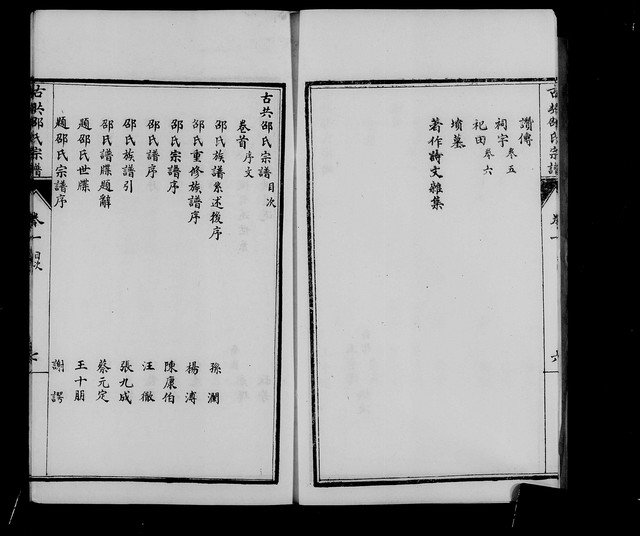 古共邵氏宗譜
卷一
六
讚傳
祠宇 卷五
祀田 卷六
墳墓
著作詩文雜集
古共邵氏宗譜 目次
卷首 序文
邵氏族譜系述後序 孫澗
邵氏重修族譜序 楊溥
邵氏宗譜序 陳康伯
邵氏譜序 汪徹
邵氏族譜引 張九成
邵氏譜牒題辭 蔡元定
題邵氏世牒 王十朋
題邵氏宗譜序 謝諤
古共邵氏宗譜
卷一 目次
七